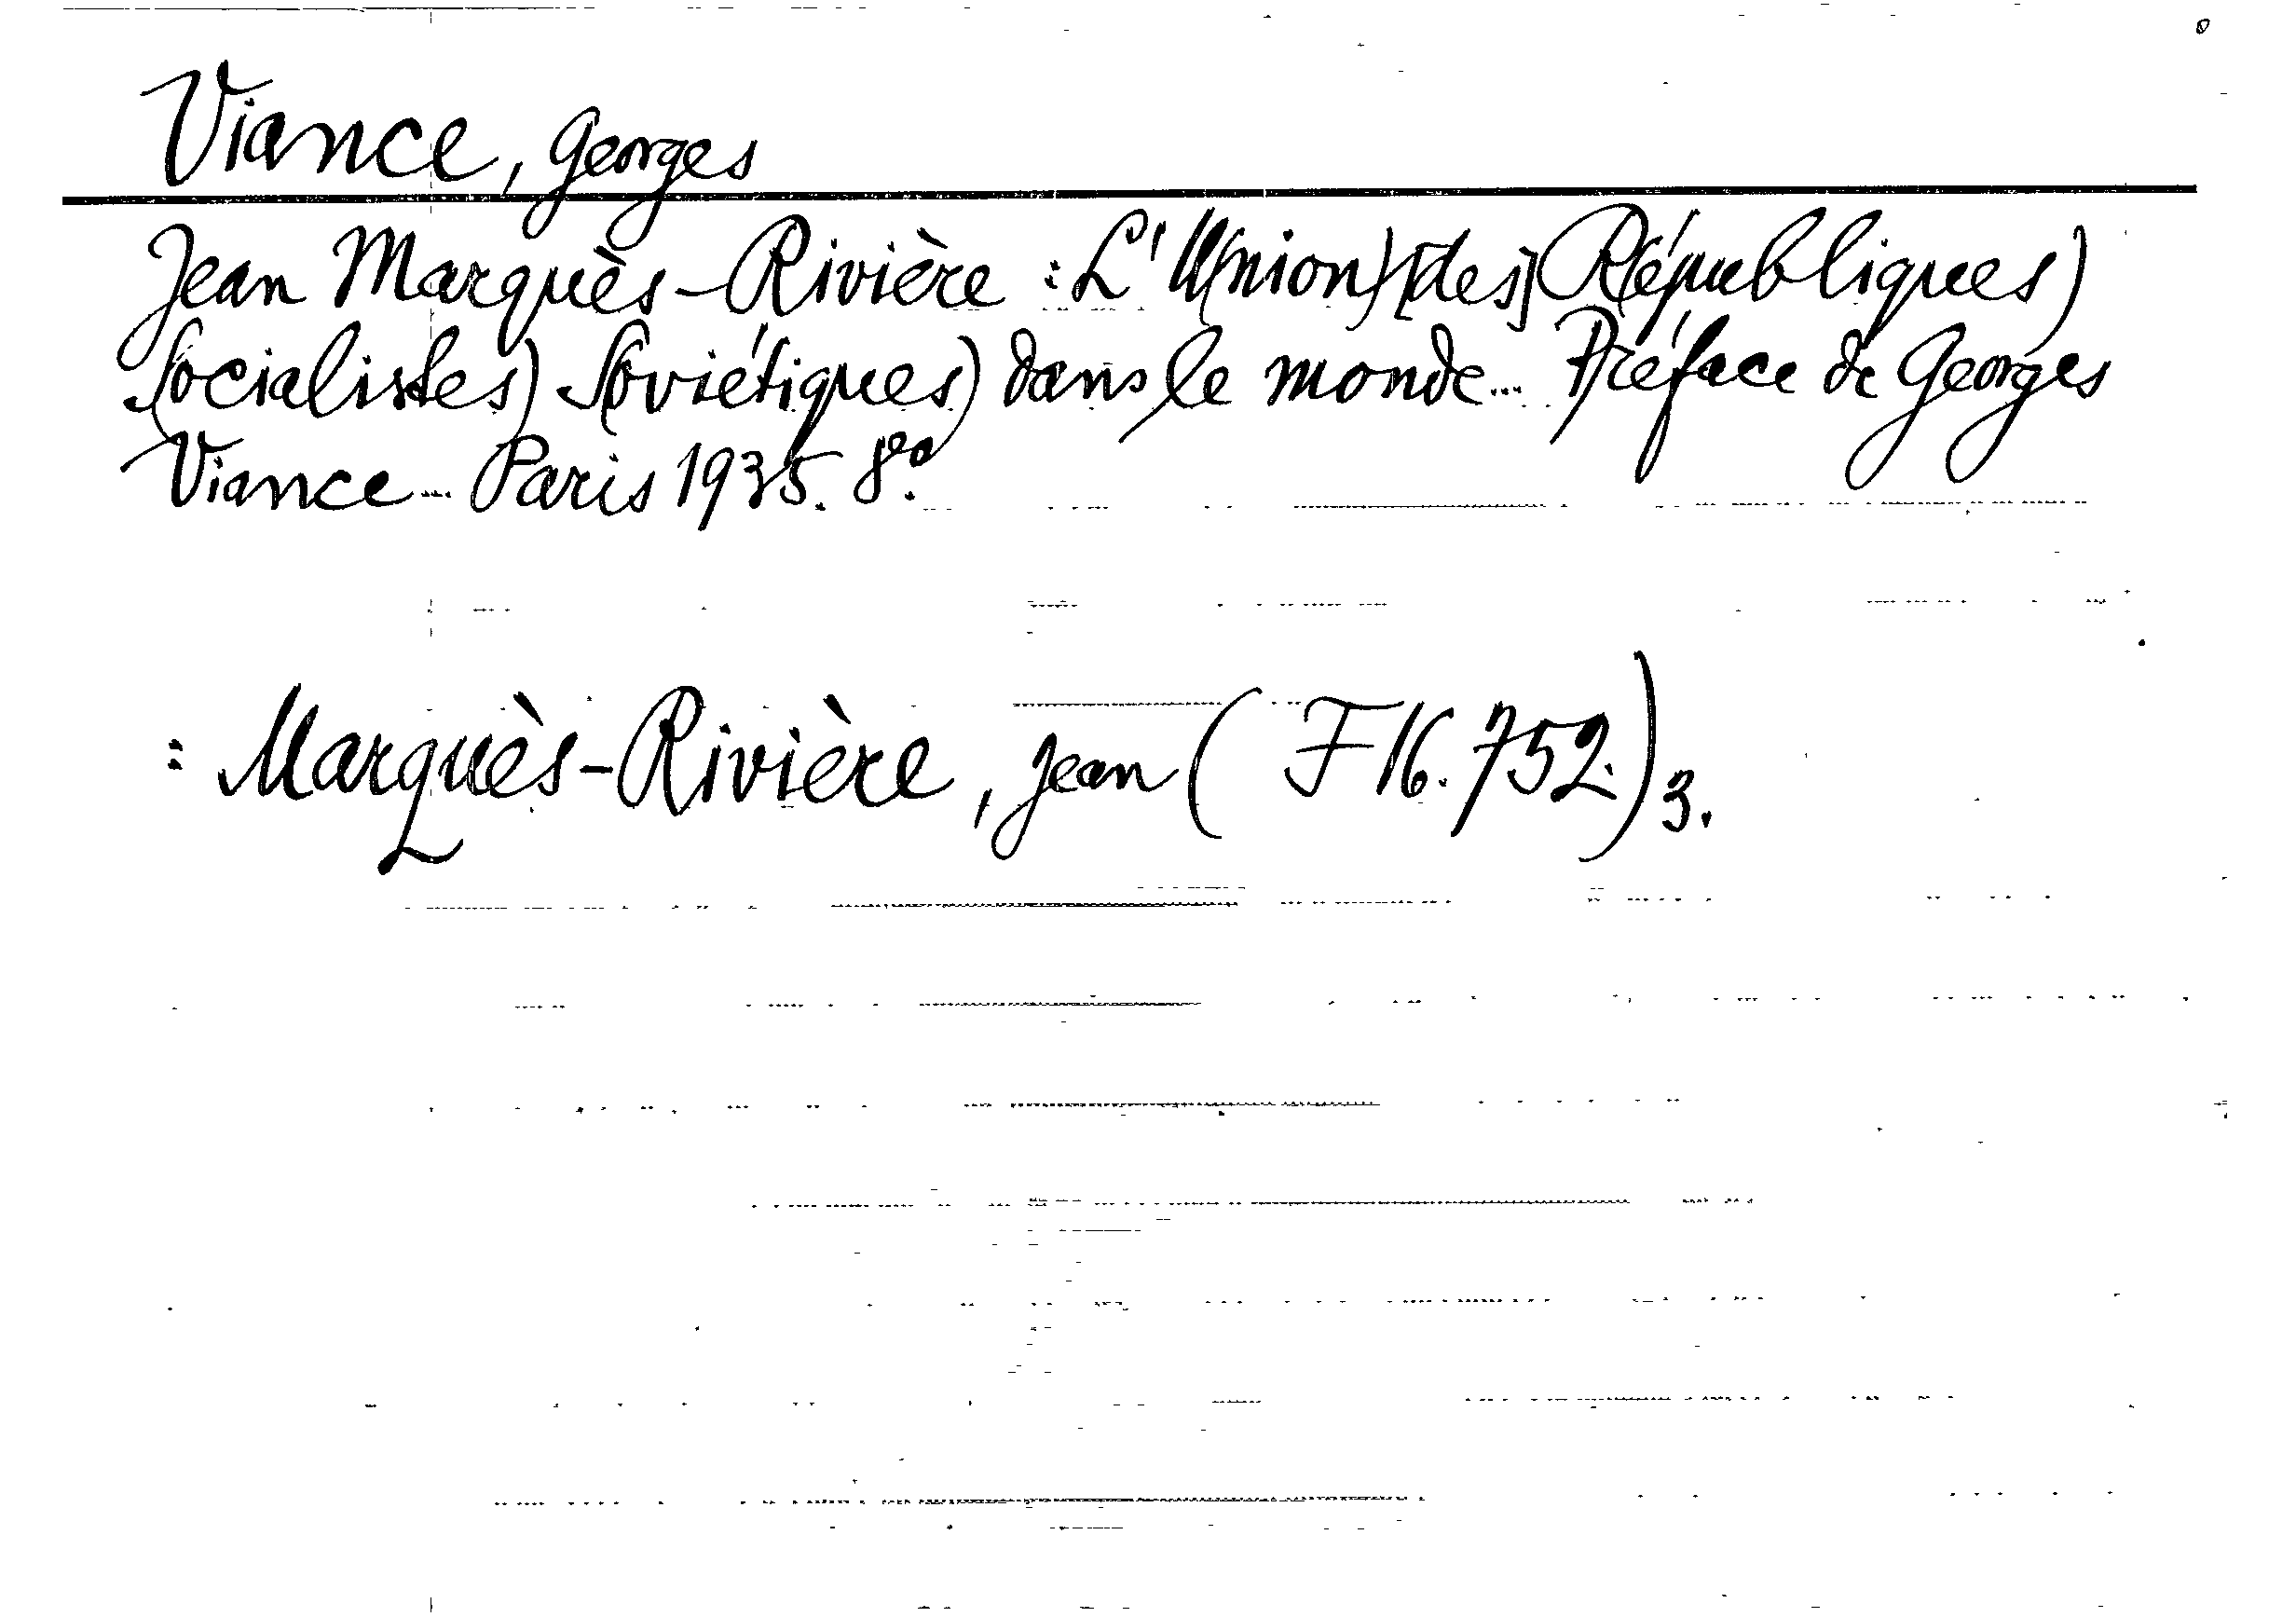 Viance, Georges
Jean Marquès-Rivière : L'U(nion) [des] R(épubliques)
S(ocialistes) S(oviétiques) dans le monde... Préface de Georges
Viance... Paris 1935. 8º.
: Marquès-Rivière, Jean ( F 16.752.)3.